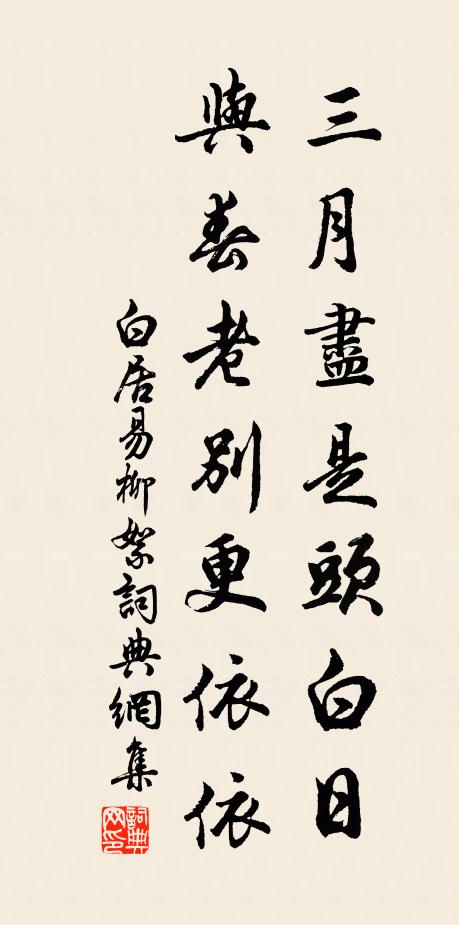 三月盡是頭白日
與春老別更依依
白居易柳絮詞典網集
詞典網印